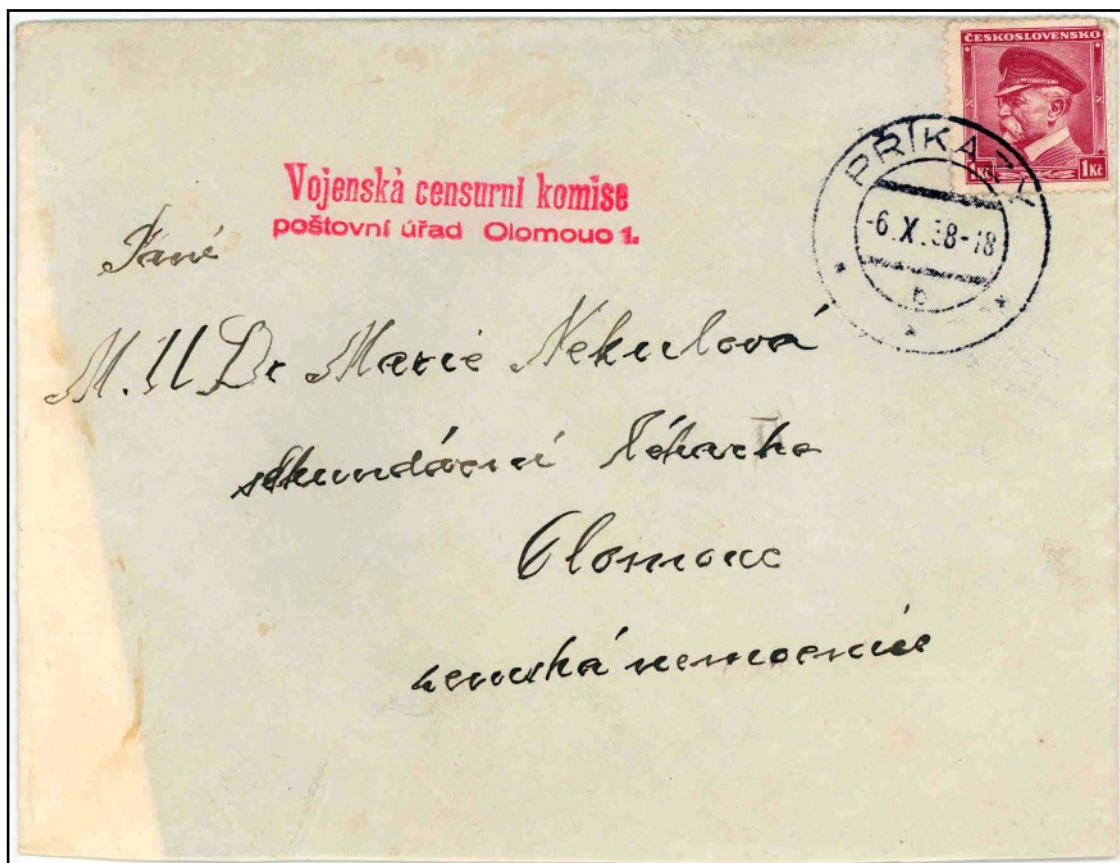 ČESKOSLOVENSKO
1Kč
PŘÍKAZY
-6.X.38-18
b
Vojenská censurní komise
poštovní úřad Olomouc 1.
Paní
M.U Dr Marie Nekulová
sekundární lékařka
Olomouc
zemská nemocnice